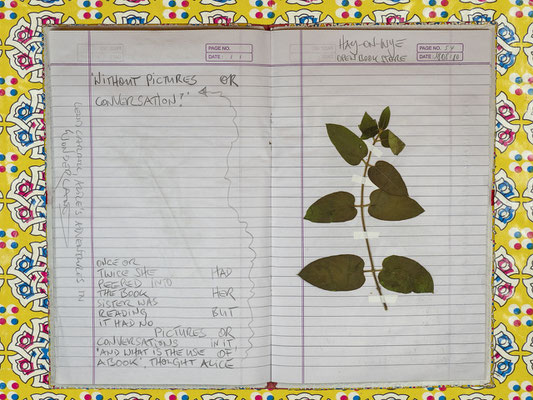 PAGE NO.
DATE
'WITHOUT PICTURES OR
CONVERSATION?'
LEWIS CARROLL, ALICE'S ADVENTURES IN
WONDERLAND
ONCE OR
TWICE SHE HAD
PEEPED INTO
THE BOOK HER
SISTER WAS
READING BUT
IT HAD NO
PICTURES OR
CONVERSATIONS IN IT
'AND WHAT IS THE USE OF
A BOOK', THOUGHT ALICE
HAY-ON-WYE
OPEN BOOK STORE
PAGE NO.
DATE